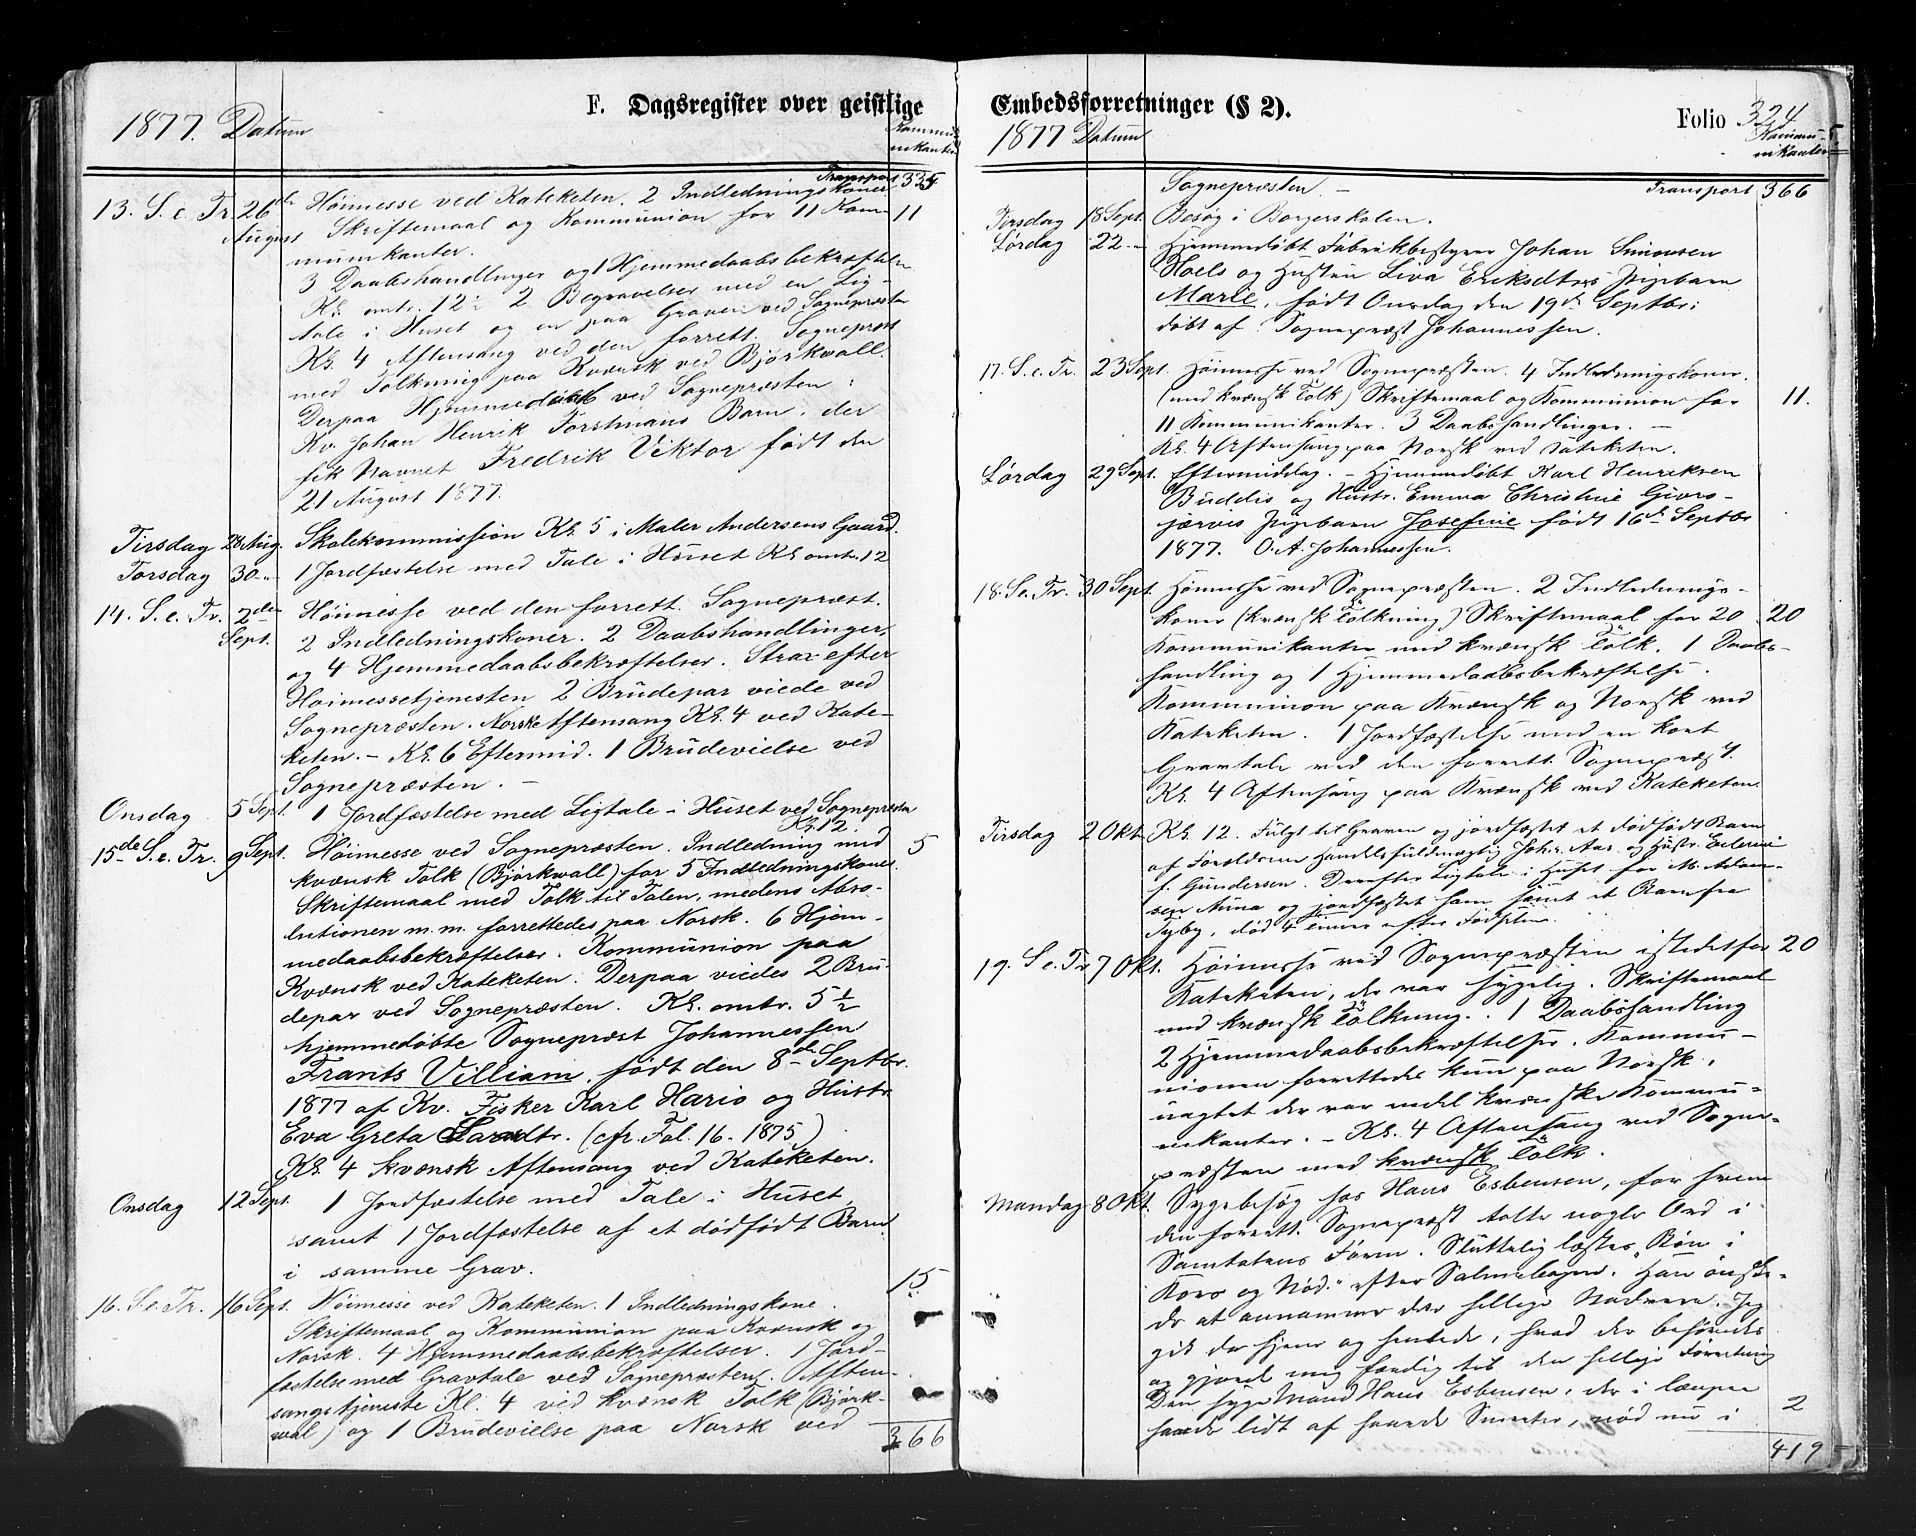 F. Dagsregister over geistlige
1877. Datum
Kommu-
nikanter
Transport 335
13. S. e. Tr. 26de August Höimesse ved Kateketen. 2 Indledningskoner
Skriftemaal og Kommunion for 11 Kom- 11
munikanter.
3 Daabshandlinger og 1 Hjemmedaabsbekræftelse
Kl. omtr. 12½ 2 Begravelser med en Lig-
tale i Huset og en paa Graven ved Sognepræsten
Kl. 4 Aftensang ved den forrett. Sognepræst
med Tolkning paa Kvænsk ved Bjørkwall.
Derpaa Hjemmedøbt ved Sognepræsten:
Kv. Johan Henrik Torstmans Barn, der
fik Navnet Fredrik Viktor født den
21 August 1877.
Tirsdag 28 Aug. Skolekommission Kl. 5 i Maler Andersens Gaard.
Torsdag 30 -"- 1 Jordfæstelse med Tale i Huset Kl omtr. 12
14. S. e. Tr. 2den Sept. Höimesse ved den forrett. Sognepræst.
2 Indledningskoner. 2 Daabshandlinger,
og 4 Hjemmedaabsbekræftelser. Strax efter
Höimessetjenesten 2 Brudepar viede ved
Sognepræsten. Norsk Aftensang Kl. 4 ved Kate-
keten. - Kl. 6 Eftermid. 1 Brudevielse ved
Sognepræsten. -
Onsdag 5 Sept. 1 Jordfæstelse med Ligtale i Huset ved Sognepræsten
Kl. 12.
15de S. e. Tr. 9 Sept. Höimesse ved Sognepræsten. Indledning med 5
kvænsk Tolk (Bjørkwall) for 5 Indledningskoner.
Skriftemaal med Tolk til Talen, medens Abso-
lutionen m. m. forrettedes paa Norsk. 6 Hjem-
medaabsbekræftelser. Kommunion paa
Kvænsk ved Kateketen. Derpaa viedes 2 Bru-
depar ved Sognepræsten. Kl. omtr. 5 ½
hjemmedøbte Sognepræst Johannessen
Frants Villiam, født den 8de Septbr.
1877 af Kv. Fisker Karl Hario og Hustr.
Eva Greta (cfr. Fol. 16 - 1875)
Kl. 4 Kvænsk Aftensang ved Kateketen.
Onsdag 12 Sept. 1 Jordfæstelse med Tale i Huset
samt 1 Jordfæstelse af et dödfödt Barn
i samme Grav.
16. S. e. Tr. 16 Sept. Höimesse ved Kateketen. 1 Indledningskone. 15
Skriftemaal og Kommunion paa Kvænsk og
Norsk. 4 Hjemmedaabsbekræftelser. 1 Jord-
fæstelse med Gravtale ved Sognepræsten. Aften-
sangstjeneste Kl. 4 ved kvænsk Tolk (Bjørk-
wal) og 1 Brudevielse paa Norsk ved
366
Embedsforretninger (§ 2).
Folio 324
1877 Datum
Kommu-
nikanter
Sognepræsten - Transport 366
Tirsdag 18 Sept. Besøg i Borgerskolen.
Lørdag 22 -"- Hjemmedøbt Fabrikbestyrer Johan Simonsen
Hoels og Hustru Liva Eriksdtrs Pigebarn
Marie, født Onsdag den 19de Septbr:
døbt af Sognepræst Johannessen.
17. S. e. Tr. 23 Sept. Höimesse ved Sognepræsten. 4 Indledningskoner.
(med kvænsk Tolk) Skriftemaal og Kommunion for 11.
11 Kommunikanter. 3 Daabshandlinger. -
Kl. 4 Aftensang paa Norsk ved Kateketen.
Lørdag 29 Sept. Eftermiddag. - Hjemmedøbt Karl Henriksen
Buddis og Hustr. Emma Christine Givrs-
jærvis Pigebarn Josefine født 16de Septbr
1877. O. A. Johannessen.
18. S e. Tr. 30 Sept. Höimesse ved Sognepræsten. 2 Indlednings-
koner (kvænsk Tolkning) Skriftemaal for 20 20
Kommunikanter med kvænsk Tolk. 1 Daabs-
handling og 1 Hjemmedaabsbekræftelse.
Kommunion paa Kvænsk og Norsk ved
Kateketen. 1 Jordfæstelse med en kort
Gravtale ved den forrett. Sognepræst.
Kl. 4 Aftensang paa Kvænsk ved Kateketen.
Tirsdag 2 Okt. Kl. 12. Fulgt til Graven og jordfæstet et dødfødt Barn
af Forældrene Handelsfuldmægtig Johs. Aar. og Hustr.
f. Gundersen. Derefter Ligtale i Huset for M. Adam-
sen Anna og jordfæstet ham samt et Barn fra
død 4 Timer efter Fødselen.
19. S e. Tr 7 Okt. Höimesse ved Sognepræsten istedetfor 20
Kateketen, der var sygelig. Skriftemaal
med kvænsk Tolkning. 1 Daabshandling
2 Hjemmedaabsbekræftelser. Kommu-
nionen forrettedes kun paa Norsk,
uagtet der var endel kvænske Kommu-
nikanter. - Kl. 4 Aftensang ved Sogne-
præsten med kvænsk Tolk.
Mandag 8 Okt. Sygebesøg hos Hans Esbensen, for hvem
den forrett. Sognepræst talte nogle Ord i
Samtalens Form. Sluttelig læstes "Bøn i
Kors og Nød" efter Salmebogen. Han önske-
de at annamme den hellige Nadvere. Jeg
gik da hjem og hentede, hvad der behövedes
og gjorde mig færdig til den hellige Forretning
Den syge Mand Hans Esbensen, der i længere
havde lidt af haarde Smerter, nød nu i 2
419